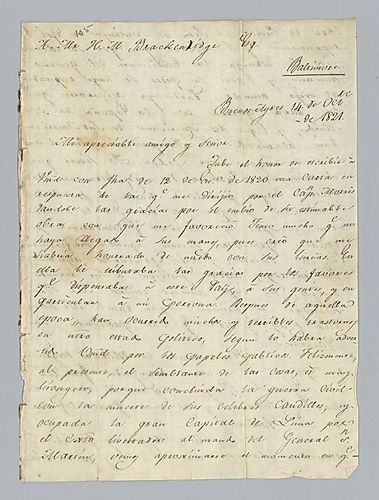 105
A. Mr. H. M. Brackenridge Esq.
Baltimore.
Buenos Ayres 14 de Oct.e
de 1821.
Mi apreciable amigo y Señor.
Tube el honor de escribir à
Vmd con fha. de 12 de de 1820 una carta en
respuesta de la q.e me dirijio por el Cap.n
dandole las gracias por el embio de su estimable
obra con que me favorecio. Temo mucho q.e no
haya llegado à sus manos, pues creo que me
habria honrado de nuebo con sus letras. En
ella le tributaba las gracias por los favores
q.e dispensaba à este Pais, à sus genios, y en
particular à mi persona. Despues de aquella
epoca, han ocurrido muchos y terribles trastornos
en nro estado politico, segun lo habrá
Vmd por los papeles publicos. Felizmente,
al presente, el semblante de las cosas, es muy
lisongero, porque concluida la guerra civil
con la muerte de sus celebres Caudillos, y
ocupada la gran Capital de Lima por
el exto libertador al mando del General S.n
Martin, vemos aproximarse el momento en q.e